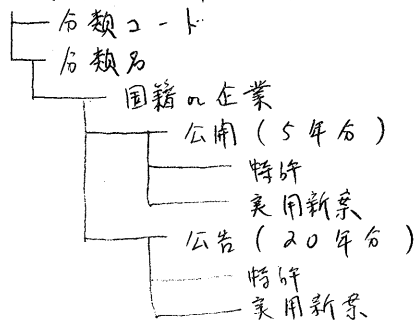 分類コード
分類名
国籍or企業
公開(5年分)
特許
実用新案
公告(20年分)
特許
実用新案